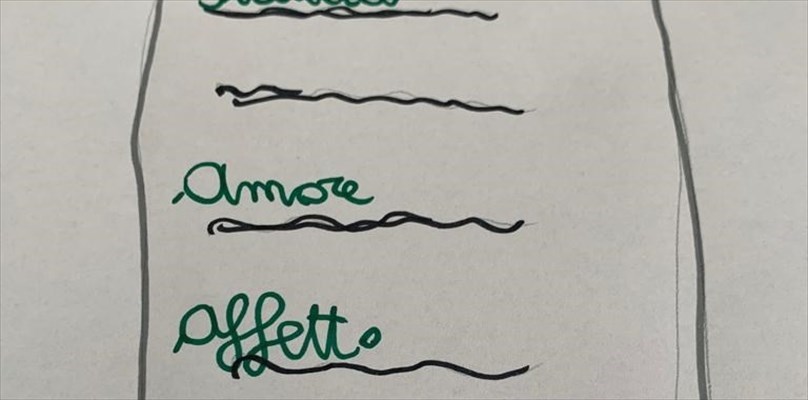 Amore
Affetto